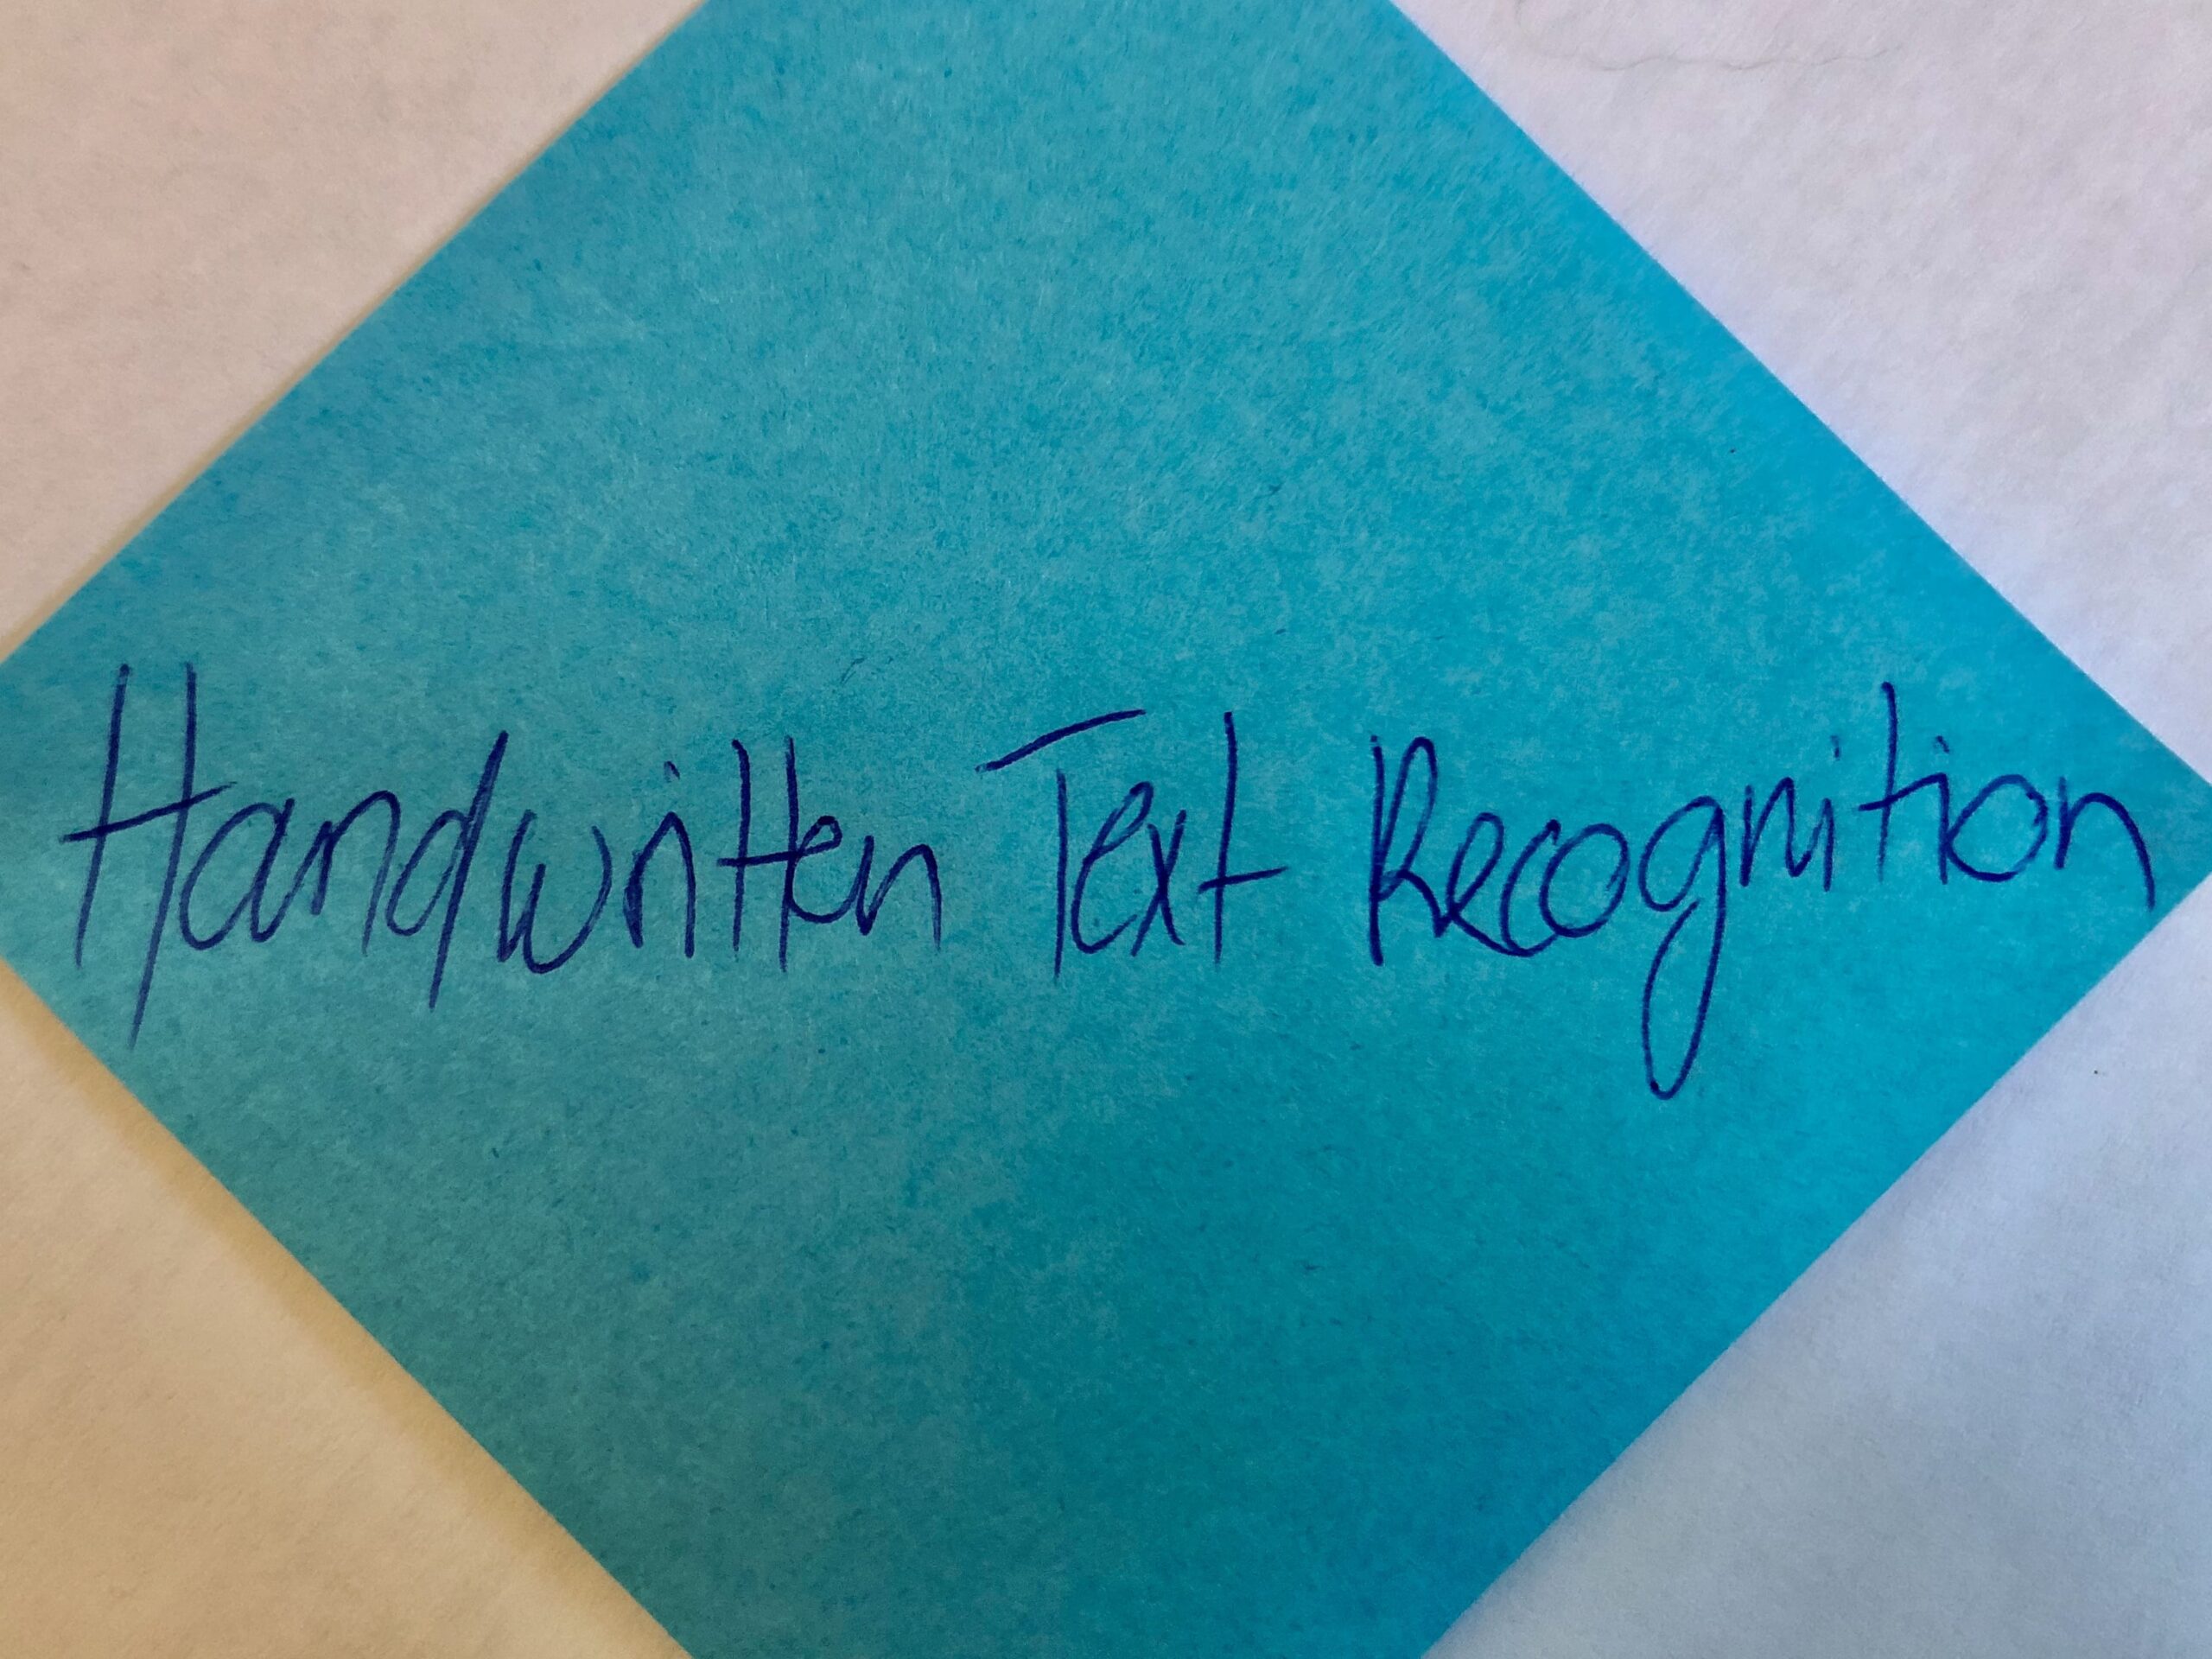 Handwritten Text Recognition